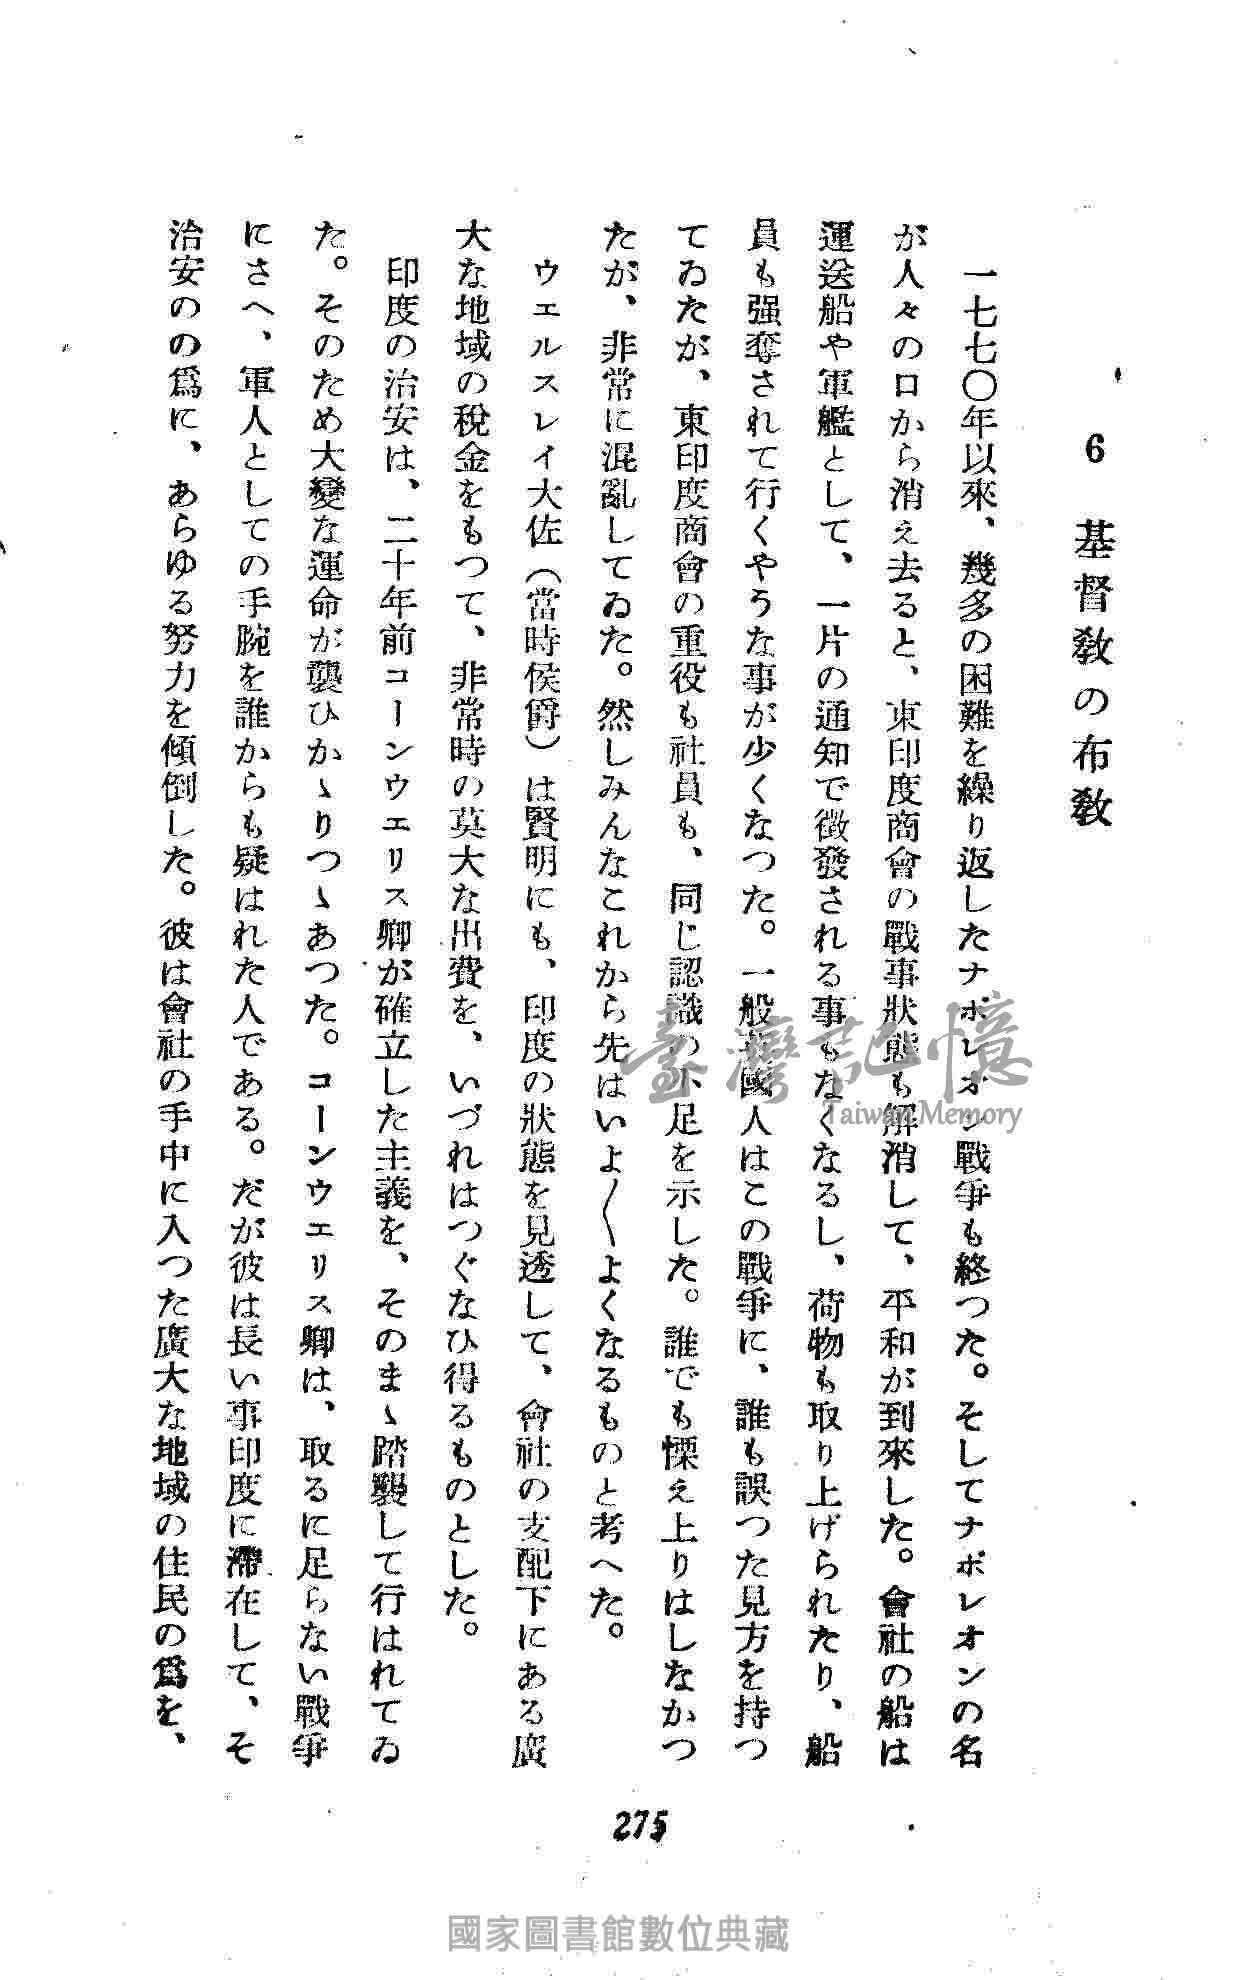 6 基督教の布教
一七七〇年以來、幾多の困難を繰り返したナポレオン戰爭も終つた。そしてナポレオンの名
が人々の口から消え去ると、東印度商會の戰事狀態も解消して、平和が到來した。會社の船は
運送船や軍艦として、一片の通知で徴發される事もなくなるし、荷物も取り上げられたり、船
員も强奪されて行くやうな事が少くなつた。一般英國人はこの戰爭に、誰も誤つた見方を持つ
てゐたが、東印度商會の重役も社員も、同じ認識の不足を示した。誰でも慄え上りはしなかつ
たが、非常に混亂してゐた。然しみんなこれから先はいよ〳〵よくなるものと考へた。
ウェルスレイ大佐（當時侯爵）は賢明にも、印度の狀態を見透して、會社の支配下にある廣
大な地域の稅金をもつて、非常時の莫大な出費を、いづれはつぐなひ得るものとした。
印度の治安は、二十年前コーンウェリス卿が確立した主義を、そのまゝ踏襲して行はれてゐ
た。そのため大變な運命が襲ひかゝりつゝあつた。コーンウェリス卿は、取るに足らない戰爭
にさへ、軍人としての手腕を誰からも疑はれた人である。だが彼は長い事印度に滯在して、そ
治安のの爲に、あらゆる努力を傾倒した。彼は會社の手中に入つた廣大な地域の住民の爲を、
275
臺灣記憶
Taiwan Memory
國家圖書館數位典藏